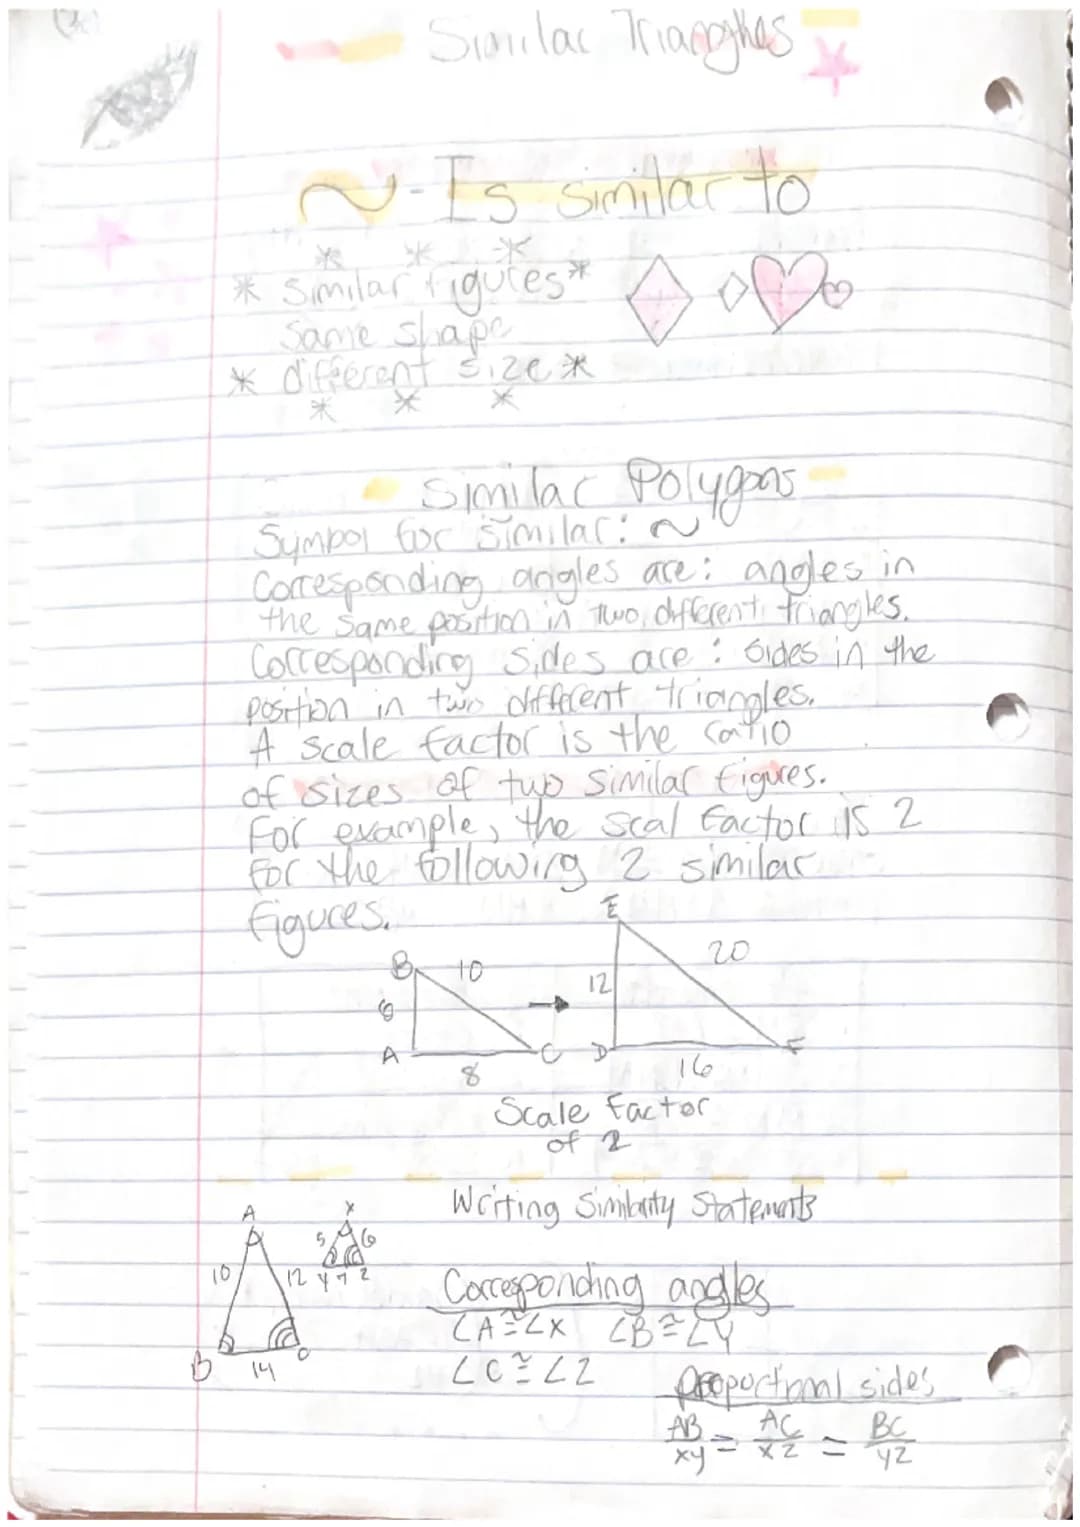 Similar Trianghes
~ - Is similar to
* * *
* Similar figures *
same shape
* different size *
* * *
Similar Polygons
Symbol for similar: ~
Corresponding angles are: angles in
the same position in two different triangles.
Corresponding sides are: sides in the
position in two different triangles.
A scale factor is the ratio
of sizes of two similar figures.
For example, the scal factor is 2
for the following 2 similar
figures.
E
B 10 20
6 12
A C D F
8 16
Scale Factor
of 2
Writing Similarity Statements
A X
5 6
10 12 Y 7 Z
B 14 C
Corresponding angles
∠A≅∠X ∠B≅∠Y
∠C≅∠Z
proportional sides
AB/XY = AC/XZ = BC/YZ